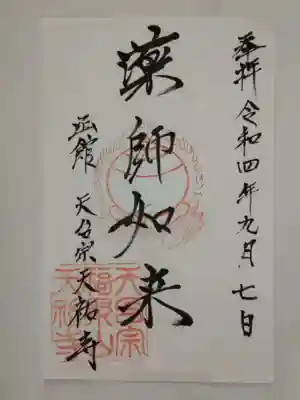 奉拝 令和四年九月七日
薬師如来
函館 天台宗 天祐寺
天台宗
天祐寺